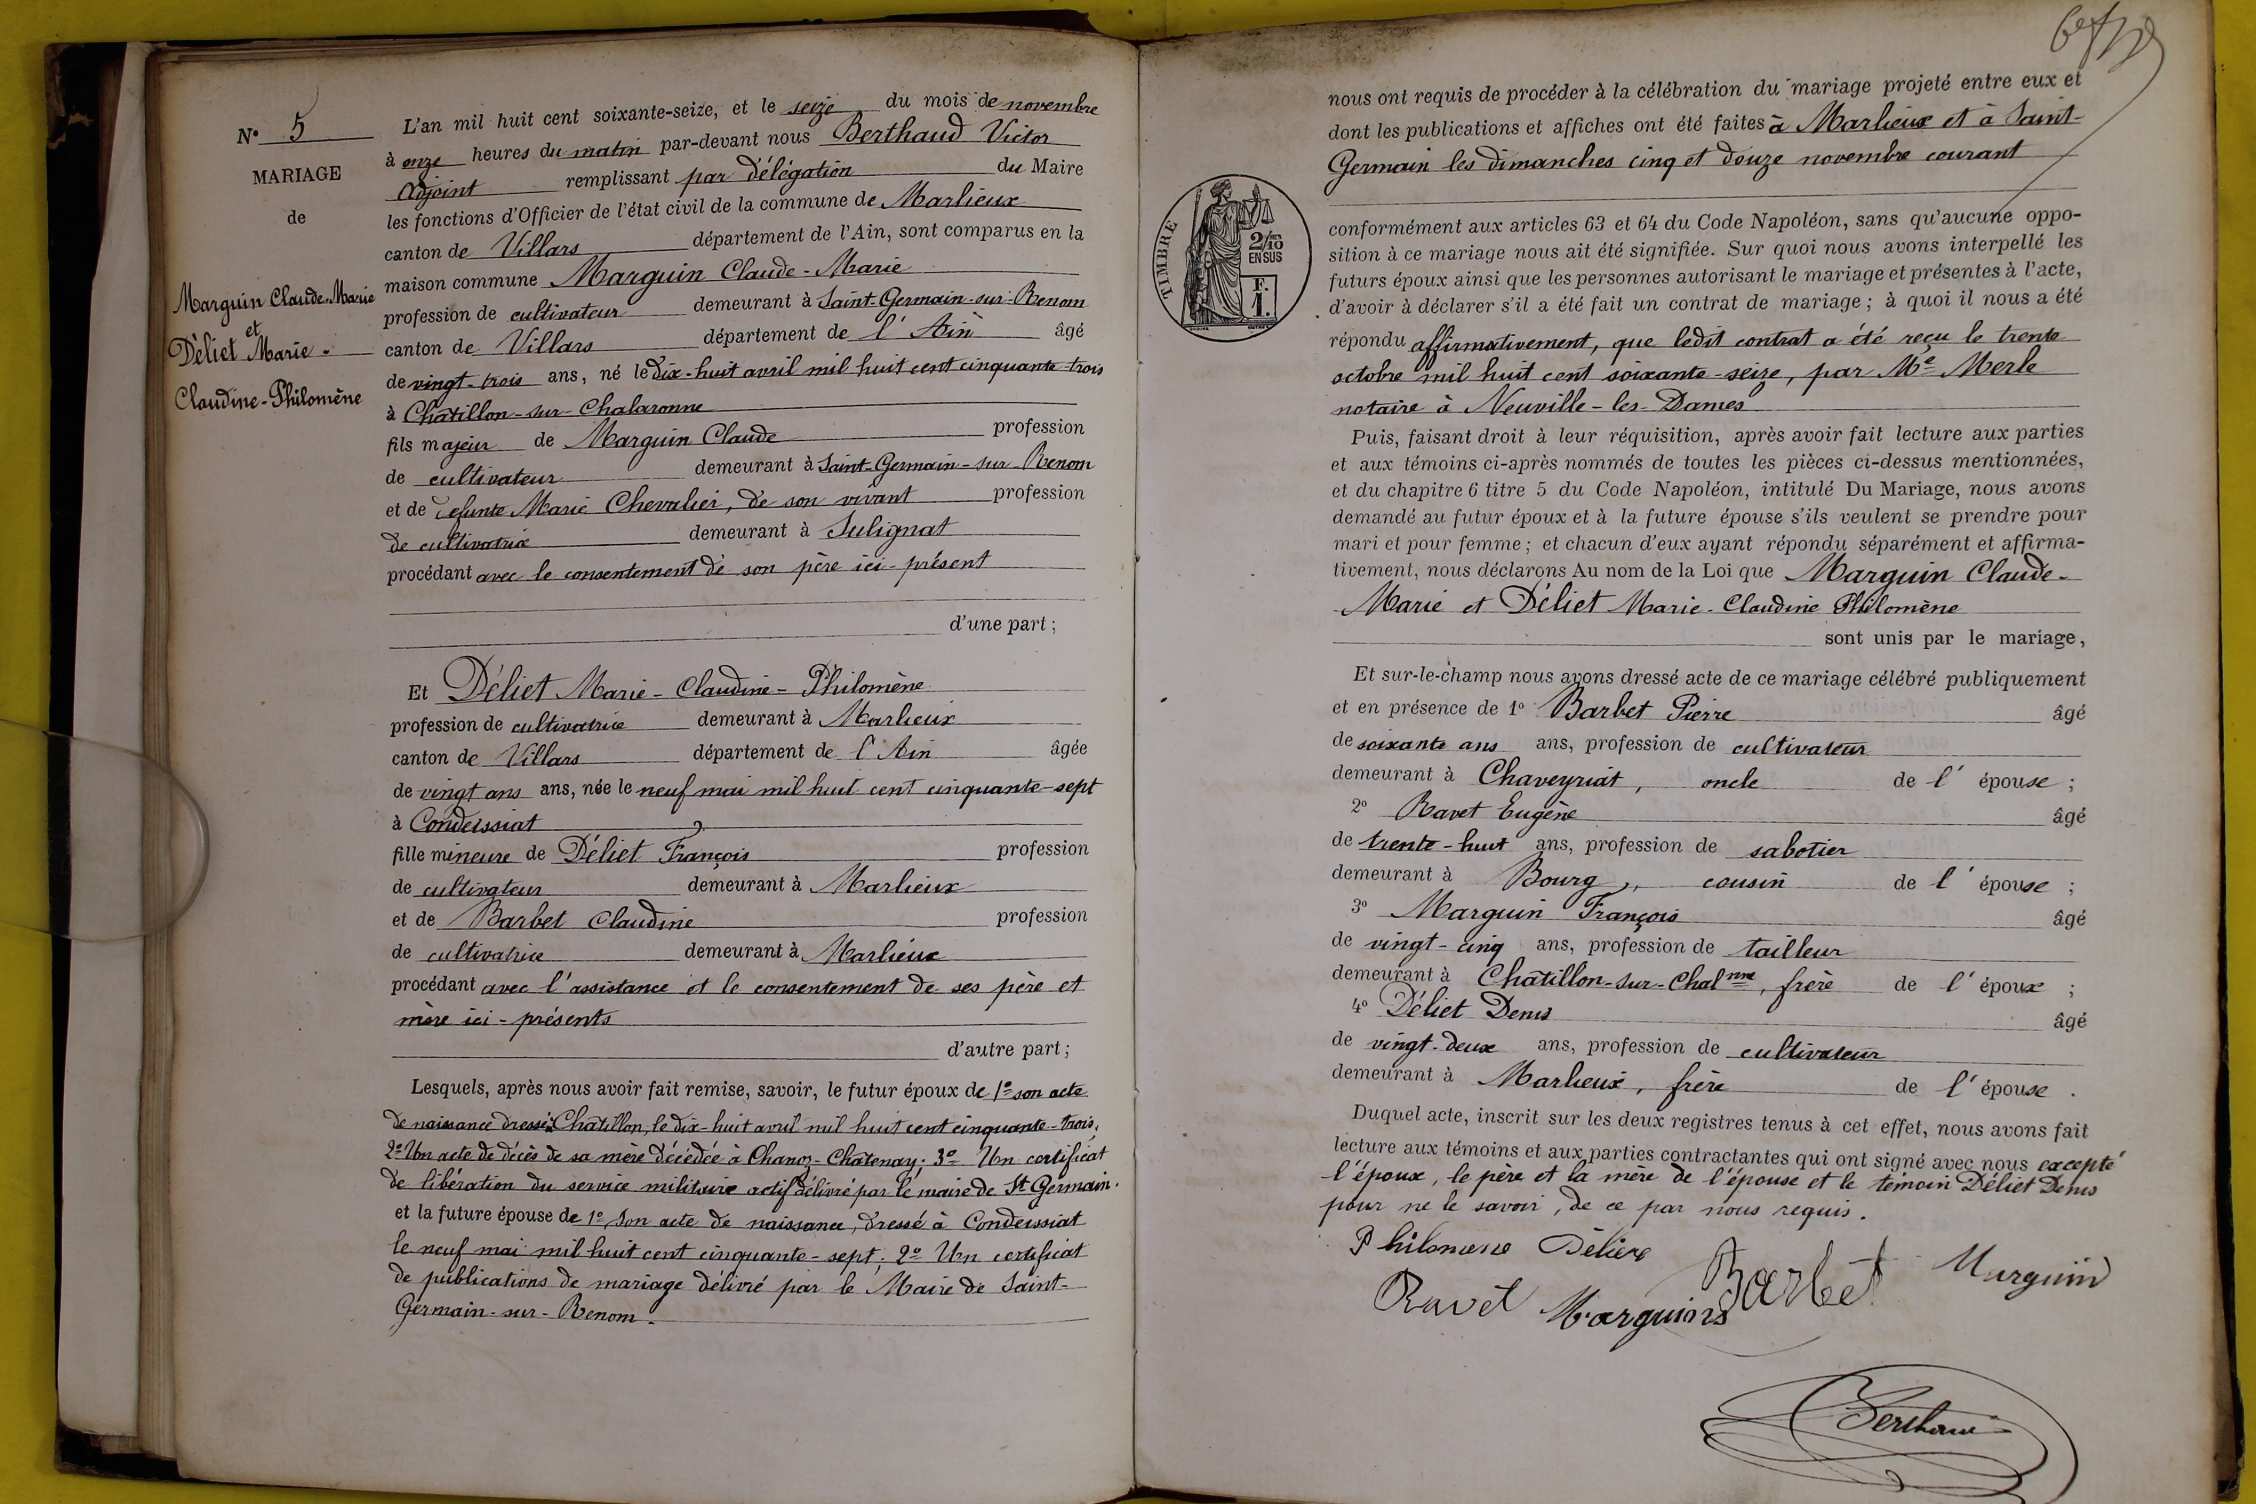 N° 5
MARIAGE
de
Marguin Claude-Marie
et
Déliet Marie-
Claudine-Philomène
L'an mil huit cent soixante-seize, et le seize du mois de novembre
à onze heures du matin par-devant nous Berthaud Victor
adjoint remplissant par délégation du Maire
les fonctions d'Officier de l'état civil de la commune de Marlieux
canton de Villars département de l'Ain, sont comparus en la
maison commune Marguin Claude-Marie
profession de cultivateur demeurant à Saint-Germain-sur-Renom
canton de Villars département de l'Ain âgé
de vingt-trois ans, né le dix-huit avril mil huit cent cinquante-trois
à Châtillon-sur-Chalaronne
fils majeur de Marguin Claude profession
de cultivateur demeurant à Saint-Germain-sur-Renom
et de défunte Marie Chevalier, de son vivant profession
de cultivatrice demeurant à Sulignat
procédant avec le consentement de son père ici-présent
d'une part ;
Et Déliet Marie-Claudine-Philomène
profession de cultivatrice demeurant à Marlieux
canton de Villars département de l'Ain âgée
de vingt ans ans, née le neuf mai mil huit cent cinquante-sept
à Condeissiat
fille mineure de Déliet François profession
de cultivateur demeurant à Marlieux
et de Barbet Claudine profession
de cultivatrice demeurant à Marlieux
procédant avec l'assistance et le consentement de ses père et
mère ici-présents
d'autre part ;
Lesquels, après nous avoir fait remise, savoir, le futur époux de 1° son acte
de naissance dressé à Châtillon, le dix-huit avril mil huit cent cinquante-trois,
2° Un acte de décès de sa mère décédée à Chanoz-Châtenay; 3° Un certificat
de libération du service militaire actif délivré par le maire de St Germain.
et la future épouse de 1° Son acte de naissance, dressé à Condeissiat
le neuf mai mil huit cent cinquante-sept; 2° Un certificat
de publications de mariage délivré par le Maire de Saint-
Germain-sur-Renom.
nous ont requis de procéder à la célébration du mariage projeté entre eux et
dont les publications et affiches ont été faites à Marlieux et à Saint-
Germain les dimanches cinq et douze novembre courant
TIMBRE
2/10 EN SUS
F.
1.
conformément aux articles 63 et 64 du Code Napoléon, sans qu'aucune oppo-
sition à ce mariage nous ait été signifiée. Sur quoi nous avons interpellé les
futurs époux ainsi que les personnes autorisant le mariage et présentes à l'acte,
d'avoir à déclarer s'il a été fait un contrat de mariage ; à quoi il nous a été
répondu affirmativement, que ledit contrat a été reçu le trente
octobre mil huit cent soixante-seize, par Me Merle
notaire à Neuville-les-Dames
Puis, faisant droit à leur réquisition, après avoir fait lecture aux parties
et aux témoins ci-après nommés de toutes les pièces ci-dessus mentionnées,
et du chapitre 6 titre 5 du Code Napoléon, intitulé Du Mariage, nous avons
demandé au futur époux et à la future épouse s'ils veulent se prendre pour
mari et pour femme ; et chacun d'eux ayant répondu séparément et affirma-
tivement, nous déclarons Au nom de la Loi que Marguin Claude-
Marie et Déliet Marie-Claudine Philomène
sont unis par le mariage,
Et sur-le-champ nous avons dressé acte de ce mariage célébré publiquement
et en présence de 1° Barbet Pierre âgé
de soixante ans ans, profession de cultivateur
demeurant à Chaveyriat, oncle de l'épouse ;
2° Ravet Eugène âgé
de trente-huit ans, profession de sabotier
demeurant à Bourg, cousin de l'épouse ;
3° Marguin François âgé
de vingt-cinq ans, profession de tailleur
demeurant à Châtillon-sur-Chalnne, frère de l'époux ;
4° Déliet Denis âgé
de vingt-deux ans, profession de cultivateur
demeurant à Marlieux, frère de l'épouse .
Duquel acte, inscrit sur les deux registres tenus à cet effet, nous avons fait
lecture aux témoins et aux parties contractantes qui ont signé avec nous excepté
l'époux, le père et la mère de l'épouse et le témoin Déliet Denis
pour ne le savoir, de ce par nous requis.
Philomene Déliere Barbet Marguin
Ravet Marguin
Berthaud